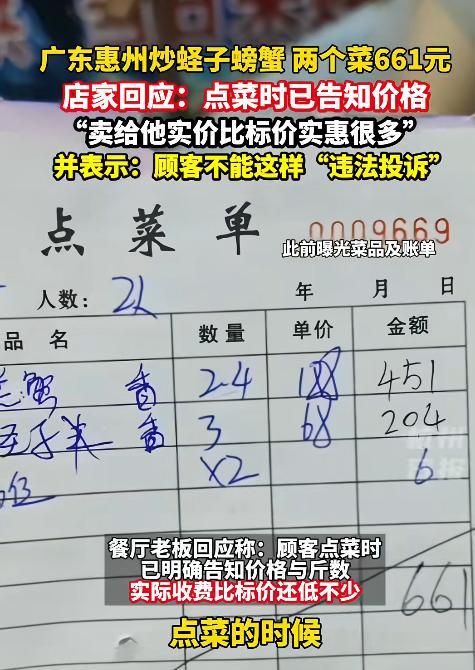 广东惠州炒蛏子螃蟹 两个菜661元
店家回应：点菜时已告知价格
“卖给他实价比标价实惠很多”
并表示：顾客不能这样“违法投诉”
点菜单 0009669
此前曝光菜品及账单
人数： 2人 年 月 日
品 名 数量 单价 金额
蟹 2-4 188 451
3 68 204
位 X2 6
661
餐厅老板回应称：顾客点菜时
已明确告知价格与斤数
实际收费比标价还低不少
点菜的时候